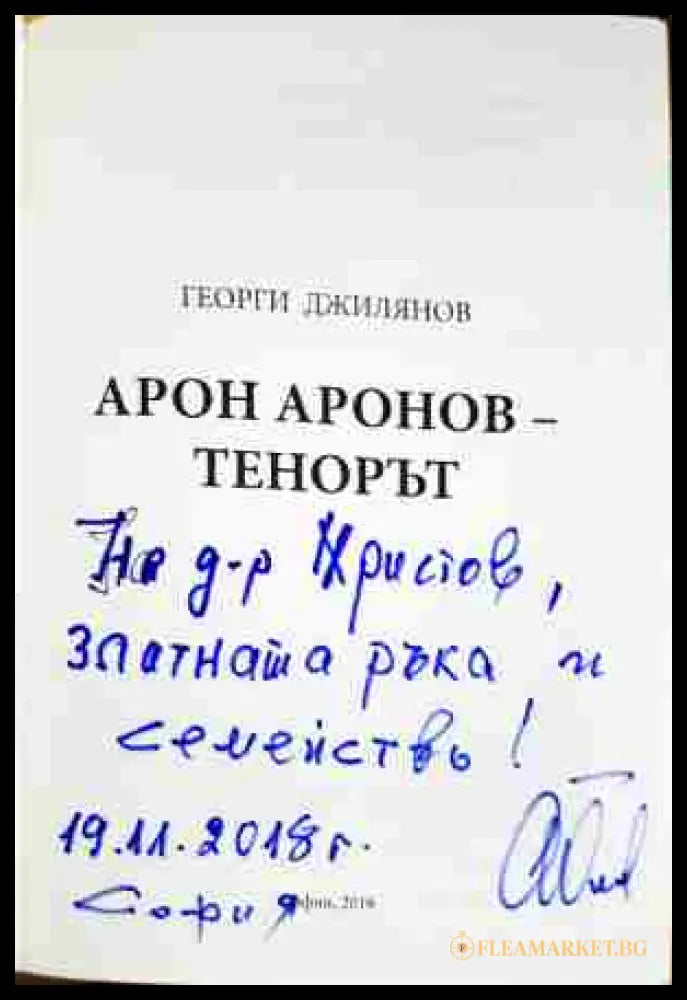 ГЕОРГИ ДЖИЛЯНОВ
АРОН АРОНОВ –
ТЕНОРЪТ
На д-р Христов,
златната ръка и
семейство!
19.11.2018 г.
София
FLEAMARKET.BG